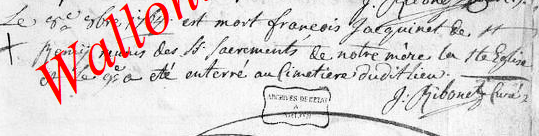 Le 8e 8bre est mort françois Jacquinet de St
Remij munis des Sts Sacrements de notre mère la Ste Eglise
et le 9e a été enterré au Cimetiere dudit lieu.
J. Ribonet Curé
ARCHIVES DE L'ETAT
A
Wallon